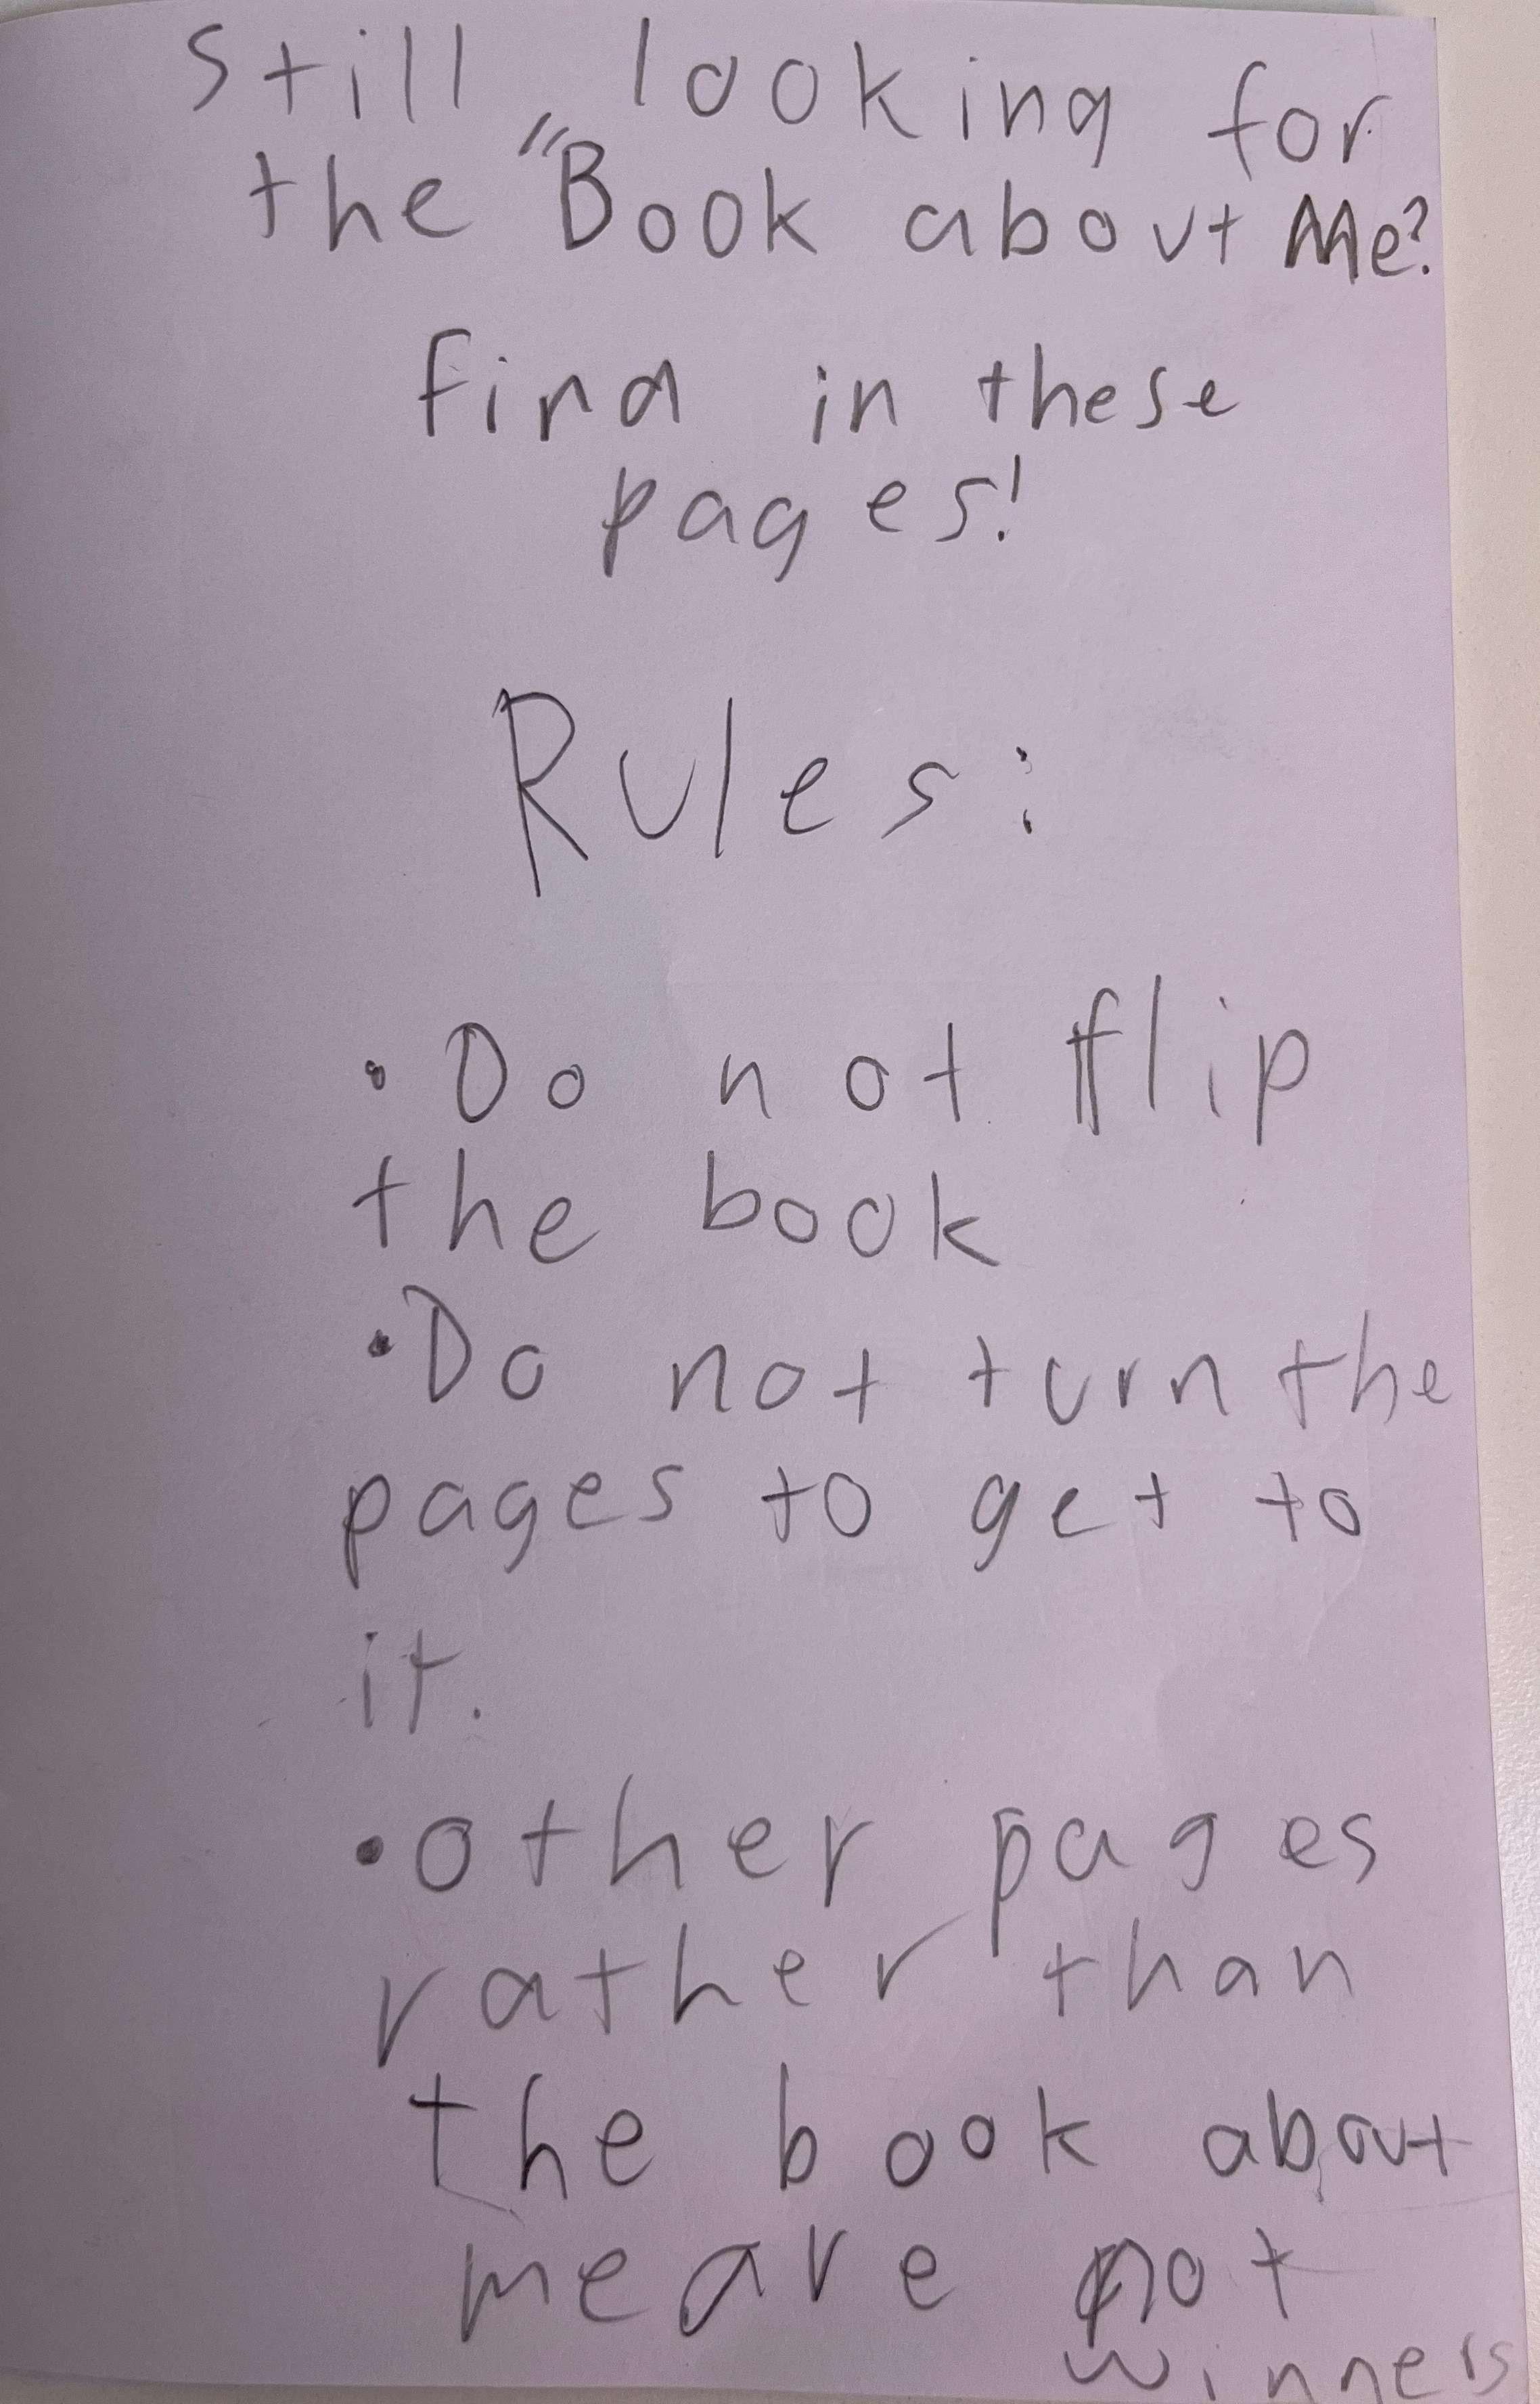 Still looking for
the "Book about Me?
find in these
pages!
Rules:
• Do not flip
the book
• Do not turn the
pages to get to
it.
• other pages
rather than
the book about
me are not
winners